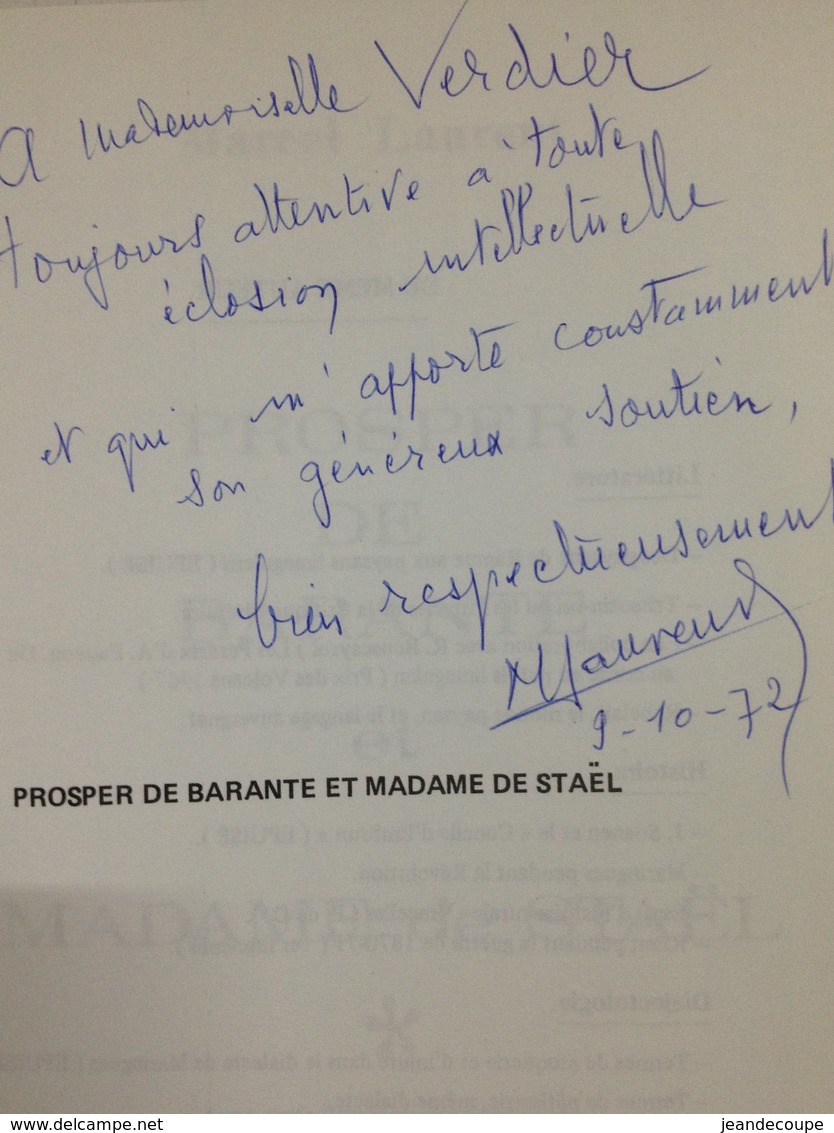 A Mademoiselle Verdier
toujours attentive à toute
éclosion intellectuelle
et qui m'apporte constamment
son généreux soutien,
bien respectueusement
MLaurent
9-10-72
PROSPER DE BARANTE ET MADAME DE STAËL
www.delcampe.net
jeandecoupe